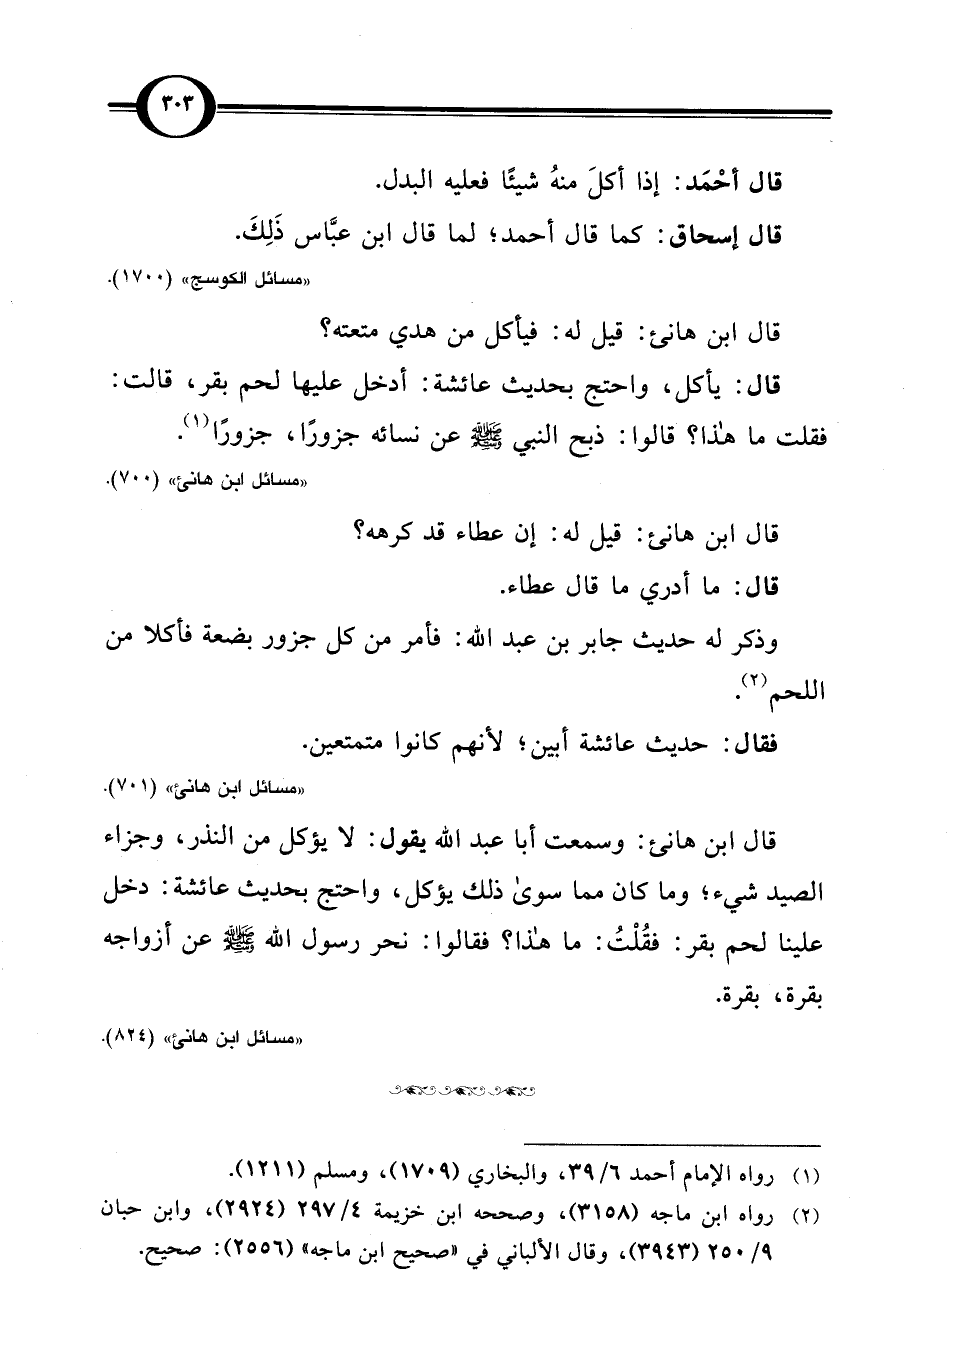 ٣٠٣
قال أحْمَد: إذا أكلَ منهُ شيئًا فعليه البدل.
قال إسحاق: كما قال أحمد؛ لما قال ابن عبَّاس ذَلِكَ.
«مسائل الكوسج» (١٧٠٠).
قال ابن هانئ: قيل له: فيأكل من هدي متعته؟
قال: يأكل، واحتج بحديث عائشة: أدخل عليها لحم بقر، قالت:
فقلت ما هٰذا؟ قالوا: ذبح النبي ﷺ عن نسائه جزورًا، جزورًا(١).
«مسائل ابن هانئ» (٧٠٠).
قال ابن هانئ: قيل له: إن عطاء قد كرهه؟
قال: ما أدري ما قال عطاء.
وذكر له حديث جابر بن عبد الله: فأمر من كل جزور بضعة فأكلا من
اللحم(٢).
فقال: حديث عائشة أبين؛ لأنهم كانوا متمتعين.
«مسائل ابن هانئ» (٧٠١).
قال ابن هانئ: وسمعت أبا عبد الله يقول: لا يؤكل من النذر، وجزاء
الصيد شيء؛ وما كان مما سوىٰ ذلك يؤكل، واحتج بحديث عائشة: دخل
علينا لحم بقر: فقُلْتُ: ما هٰذا؟ فقالوا: نحر رسول الله ﷺ عن أزواجه
بقرة، بقرة.
«مسائل ابن هانئ» (٨٢٤).
(١) رواه الإمام أحمد ٦/ ٣٩، والبخاري (١٧٠٩)، ومسلم (١٢١١).
(٢) رواه ابن ماجه (٣١٥٨)، وصححه ابن خزيمة ٤/ ٢٩٧ (٢٩٢٤)، وابن حبان
٩/ ٢٥٠ (٣٩٤٣)، وقال الألباني في «صحيح ابن ماجه» (٢٥٥٦): صحيح.